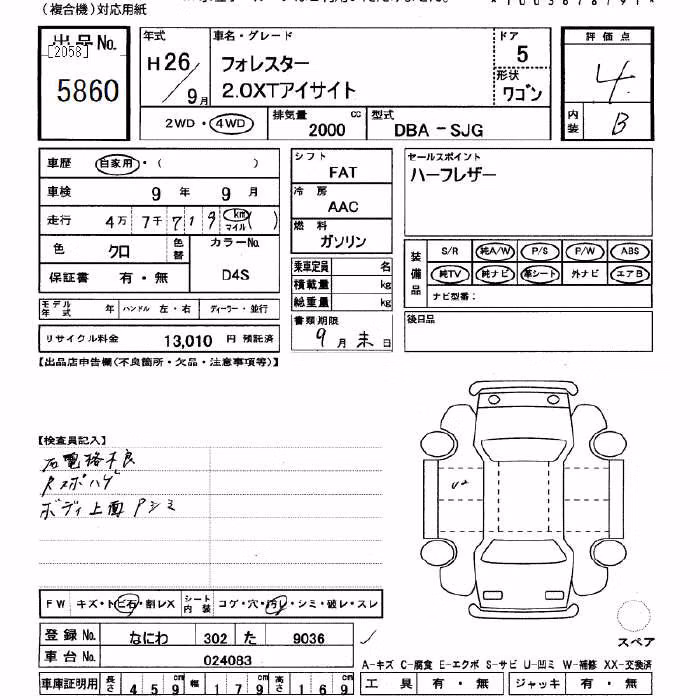 (複合機)対応用紙
出品No. 年式 車名・グレード ドア 評価点
[2058]
5860 H26/9月 フォレスター 5 4
2.0XTアイサイト 形状 ワゴン
2WD・4WD 排気量 2000 cc 型式 DBA-SJG 内装 B
車歴 自家用・( ) シフト FAT セールスポイント
ハーフレザー
車検 9年 9月 冷房 AAC
走行 4万 7千 719 km マイル ( ) 燃料 ガソリン
色 クロ 色替 カラーNo. D4S
装備品 S/R 純A/W P/S P/W ABS
純TV 純ナビ 革シート 外ナビ エアB
ナビ型番:
保証書 有・無 乗車定員 名
積載量 kg
総重量 kg
モデル年式 年 ハンドル 左・右 ディーラー・並行
書類期限 9月末日 後日品
リサイクル料金 13,010 円 預託済
【出品店申告欄(不良箇所・欠品・注意事項等)】
【検査員記入】
右電格不良
Rスポハゲ
ボディ上面Pシミ
U2
FW キズ・トビ石・割レX シート内装 コゲ・穴・汚レ・シミ・破レ・スレ
登録No. なにわ 302 た 9036
車台No. 024083
スペア
A-キズ C-腐食 E-エクボ S-サビ U-凹ミ W-補修 XX-交換済
車庫証明用 長さ 459cm 幅 179cm 高さ 169cm 工具 有・無 ジャッキ 有・無